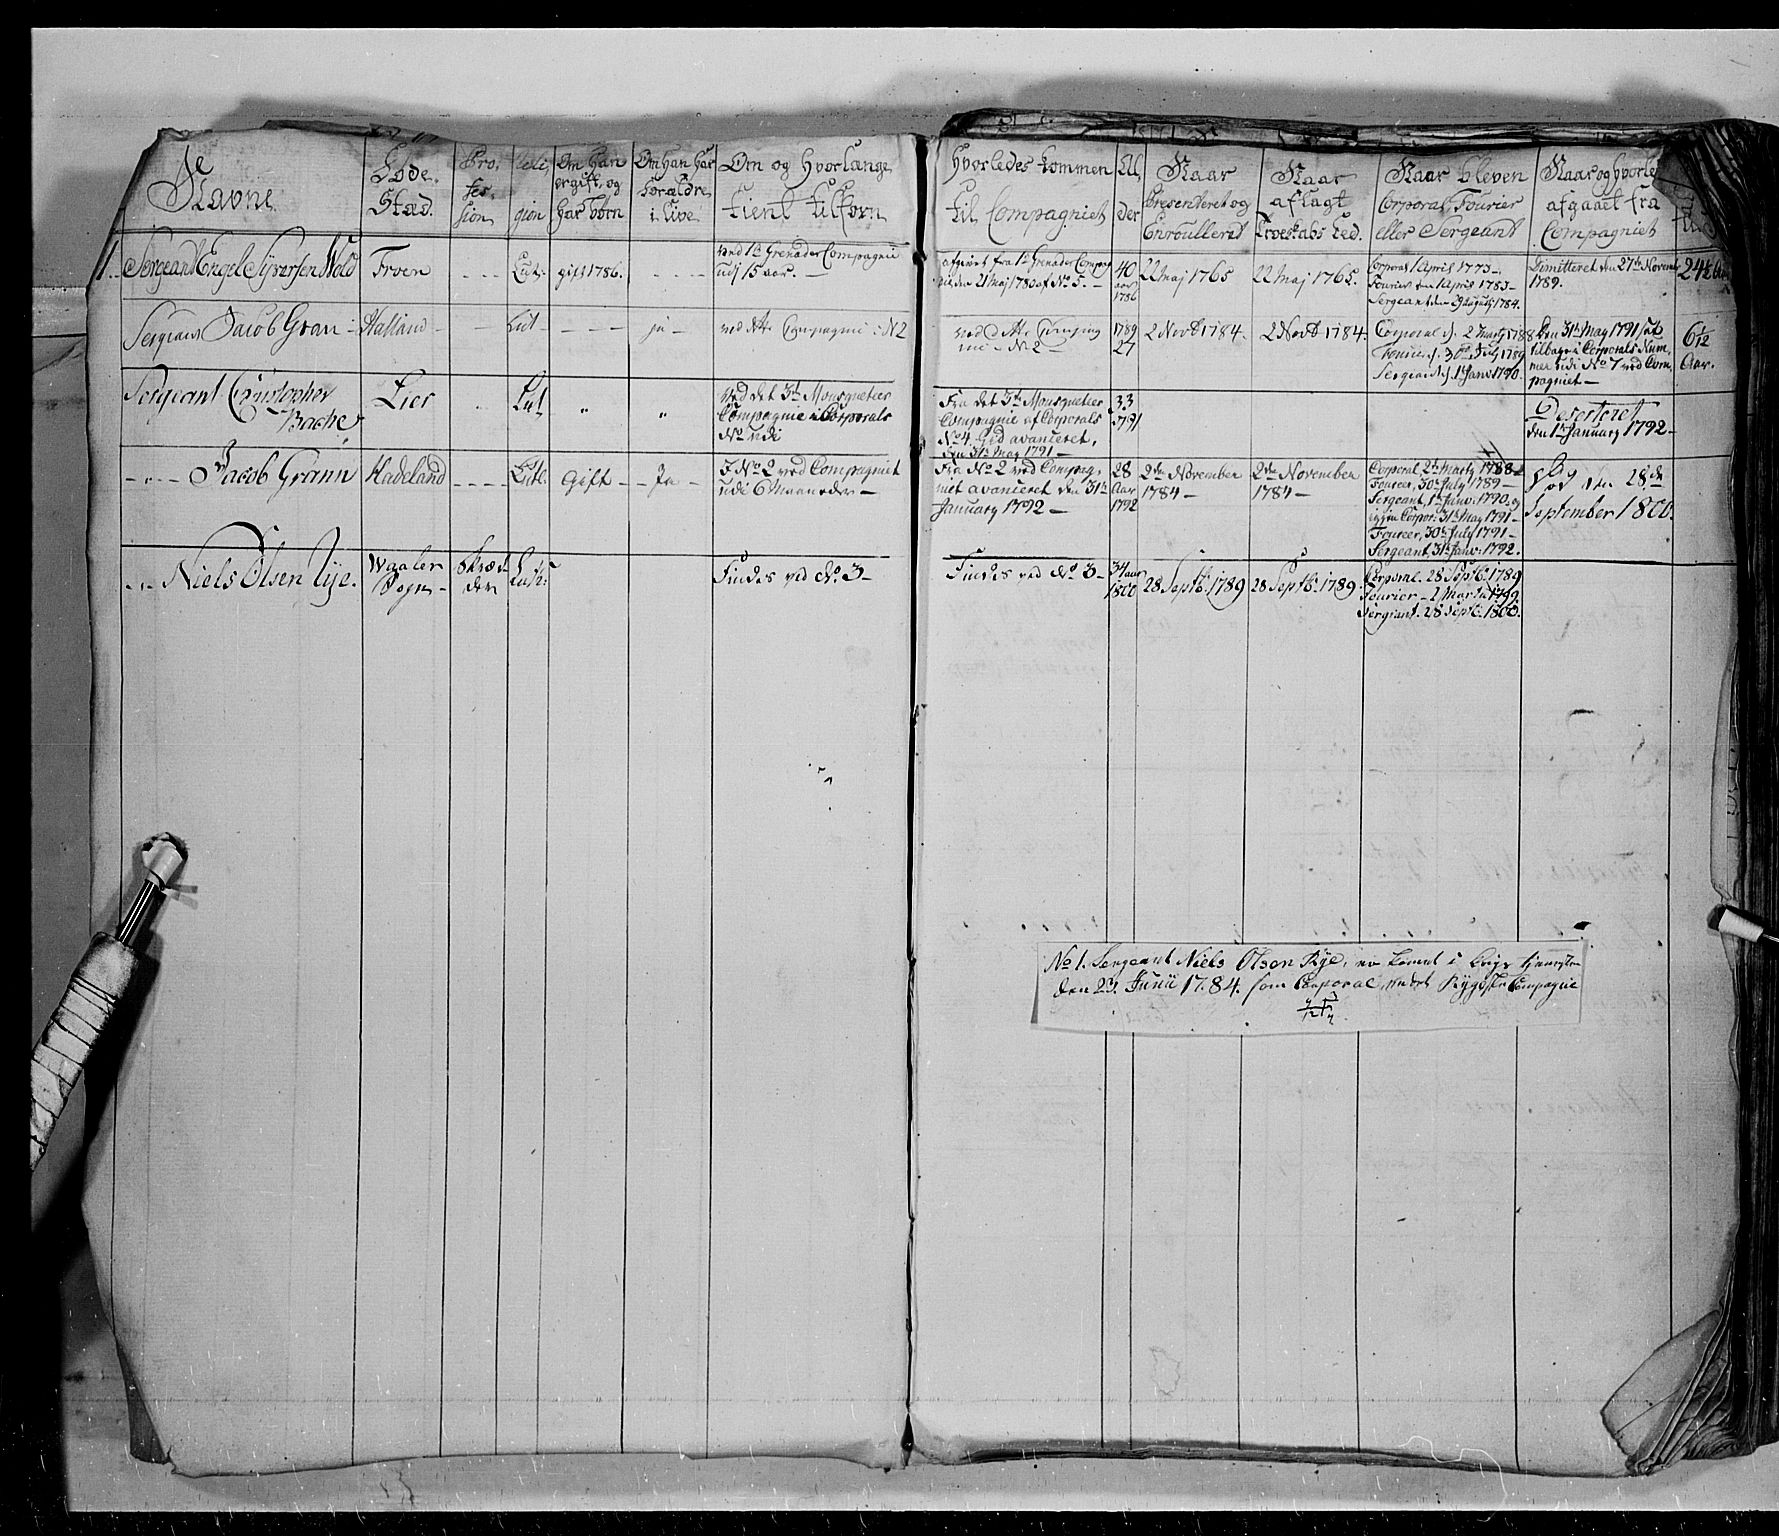 Navne
Føde
Stæd.
Pro
fes
sion
Reli
gion
Om han
er gift, og
har børn
Om han har
Forældre
i Live
Om og hvorlænge
tient tilforn
Hvorledes kommen
til Compagniet
All
der
Naar
Præsenteret og
Enroulleret
Naar
aflagt
Troeskabs Eed.
Naar bleven
Corporal, Fourier
eller Sergeant
Naar og hvorle
afgaaet fra
Compagniet
1. Sergeant Engel Syversen Wold
Froen
Lut.
gift 1786.
ved 1te Grenader Compagnie
udj 15 aar.
afgivet fra 1te Grenader Compag
nie den 21 Maj 1780 af No 5.
40
aar
1786
22 Maj 1765
22 Maj 1765.
Corporal 1 April 1773
Fourier den 1 April 1783
Sergeant den 9 Augusty 1784.
Dimitteret den 27de Novemb
1789.
24½
Sergeant Jacob Gran
Hafland
Lut
ja
ved dtte Compagnie No 2
ved dtte Compag
nie No 2
1789
27
2 Novb 1784.
2 Novb 1784.
Corporal d. 2 Marty 1788
Fourier d. 30te July 1789
Sergeant d. 1te Janv. 1790.
Den 31te May 1791 sat
tilbage i Corporals Num,
mer udi No 7 ved Com,
pagniet
6½
Aar.
Sergeant Christopher
Bache
Lier
Lut
"
"
ved det 3die Mousquetier
Compagnie i Corporals
No udi
Fra det 3die Mousquetier
Compagnie af Corporals
No 4 hid avanceret,
den 31te May 1791
33
1791
Deserteret
den 1te January 1792
" Jacob Grann
Hadeland
Luth.
Gift
Ja
I No 2 ved Compagniet
udi 6 Maaneder
Fra No 2 ved Compag,
niet avanceret den 31te
January 1792
28
Aar
1792
2den November
1784
2den November
1784
Corporal 2de Marty 1788
Foureer, 30te July 1789
Sergeant, 1te Janv: 1790, og
igjen Corpor: 31te May 1791
Foureer, 30te July 1791
Sergeant, 31te Janv: 1792.
Død den 28de
September 1800.
" Niels Olsen Rye.
Waaler
Sogn
Skræd
der
Luth:
Findes ved No 3
Findes ved No 3
34 aar
1800
28 Septb. 1789
28 Septb. 1789
Corporal. 28 Septb. 1789
Fourier 1 Marty 1799
Sergiant. 28 Septb. 1800.
No 1. Sergeant Niels Olsen Rye, er komet i Krigs tjeneste
den 23. Junii 1784. som Corporal, under Rygdste Compagnie